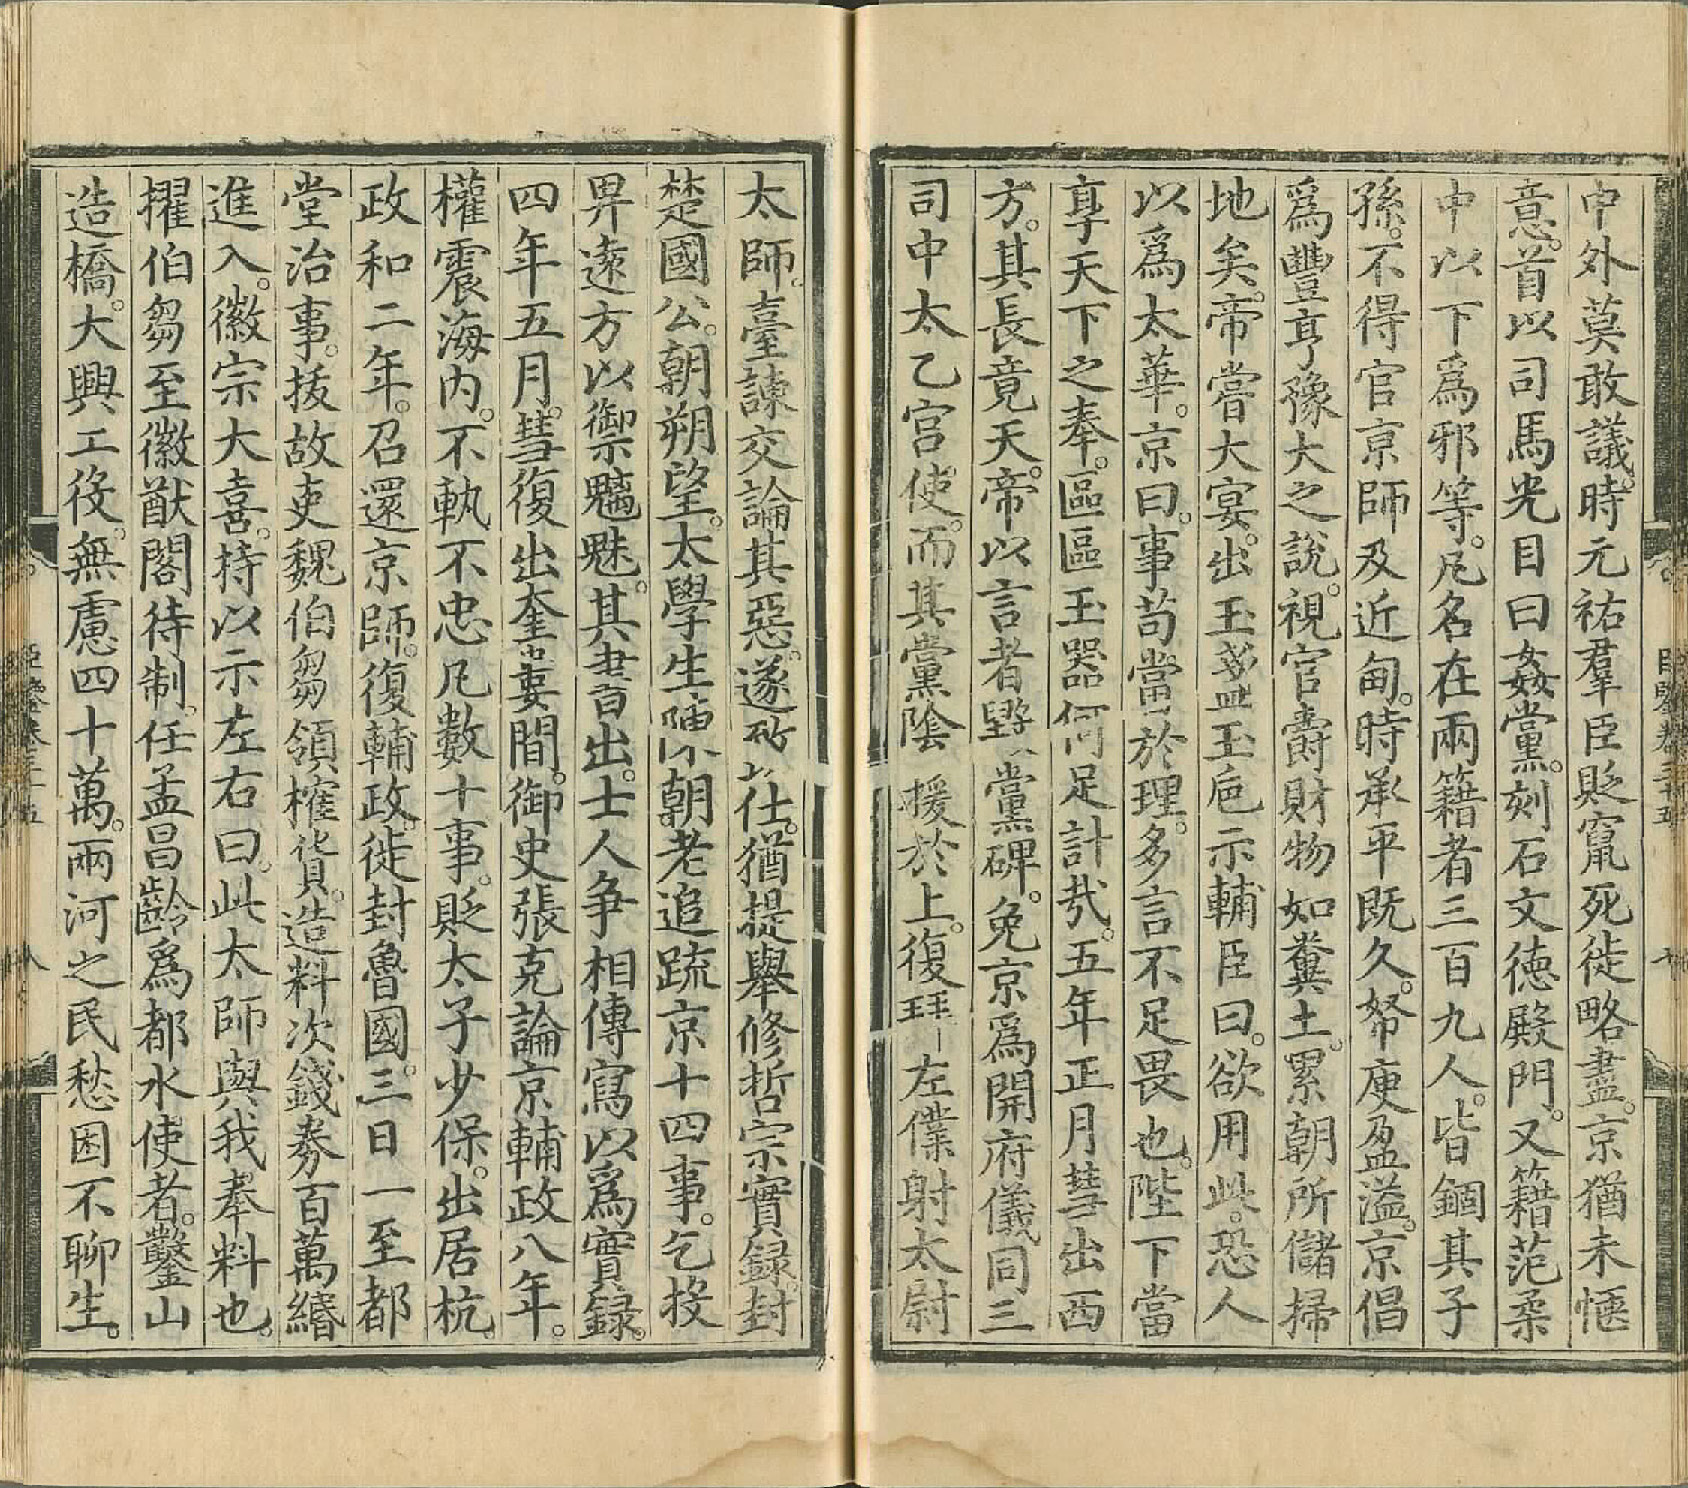 中外莫敢議。時元祐羣臣貶竄死徙略盡。京猶未愜
意。首以司馬光目曰姦黨。刻石文德殿門。又籍范柔
中以下爲邪等。凡名在兩籍者三百九人。皆錮其子
孫。不得官京師及近甸。時承平既久。帑庾盈溢。京倡
爲豐亨豫大之說。視官爵財物如糞土。累朝所儲掃
地矣。帝嘗大宴。出玉琖玉卮示輔臣曰。欲用此。恐人
以爲太華。京曰。事苟當於理。多言不足畏也。陛下當
享天下之奉。區區玉器何足計哉。五年正月彗出西
方。其長竟天。帝以言者毀黨碑。免京爲開府儀同三
司中太乙宮使。而其黨陰援於上。復拜左僕射太尉
太師。臺諫交論其惡。遂致仕。猶提舉修哲宗實録。封
楚國公。朝朔望。太學生陳朝老追疏京十四事。乞投
畀遠方以禦魑魅。其書出。士人争相傳寫以爲實録。
四年五月。彗復出奎婁間。御史張克論京輔政八年。
權震海内。不軌不忠凡數十事。貶太子少保。出居杭。
政和二年。召還京師。復輔政。徙封魯國。三日一至都
堂治事。拔故吏魏伯芻領榷貨。造料次錢券百萬緡
進入。徽宗大喜。持以示左右曰。此太師與我奉料也。
擢伯芻至徽猷閣待制。任孟昌齡爲都水使者。鑿山
造橋。大興工役。無慮四十萬。兩河之民愁困不聊生。